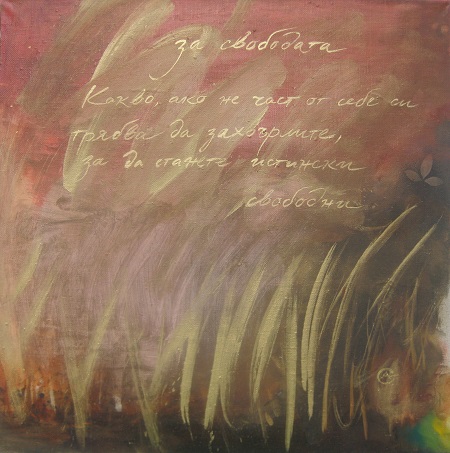 за свободата
Какво, ако не част от себе си
трябва да захвърлите,
за да станете истински
свободни